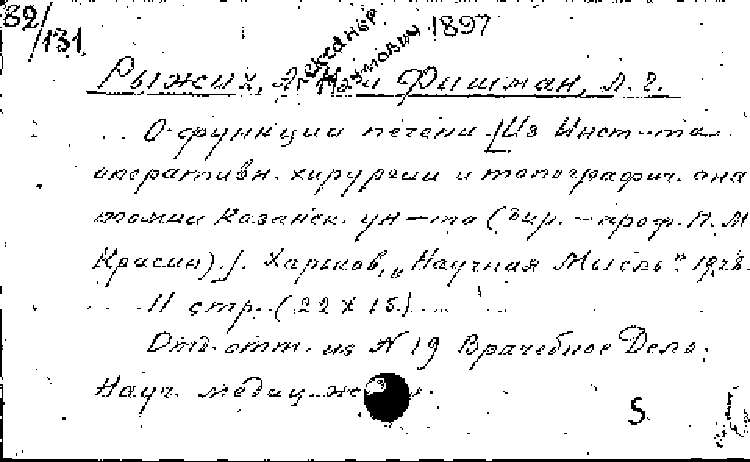 82/131
Александр Наумович 1897
Рыжих, А. Н. и Фишман, Л. Г.
О функции печени. [Из Инст-та
оперативн. хирургии и топографич. ана
томии Казанск. ун-та (дир. - проф. П. М
Красин).]. Харьков, "Научная Мысль" 1928.
11 стр. (22 x 15).
Отд. отт. из N 19 Врачебное Дело.
Науч. медиц.
S